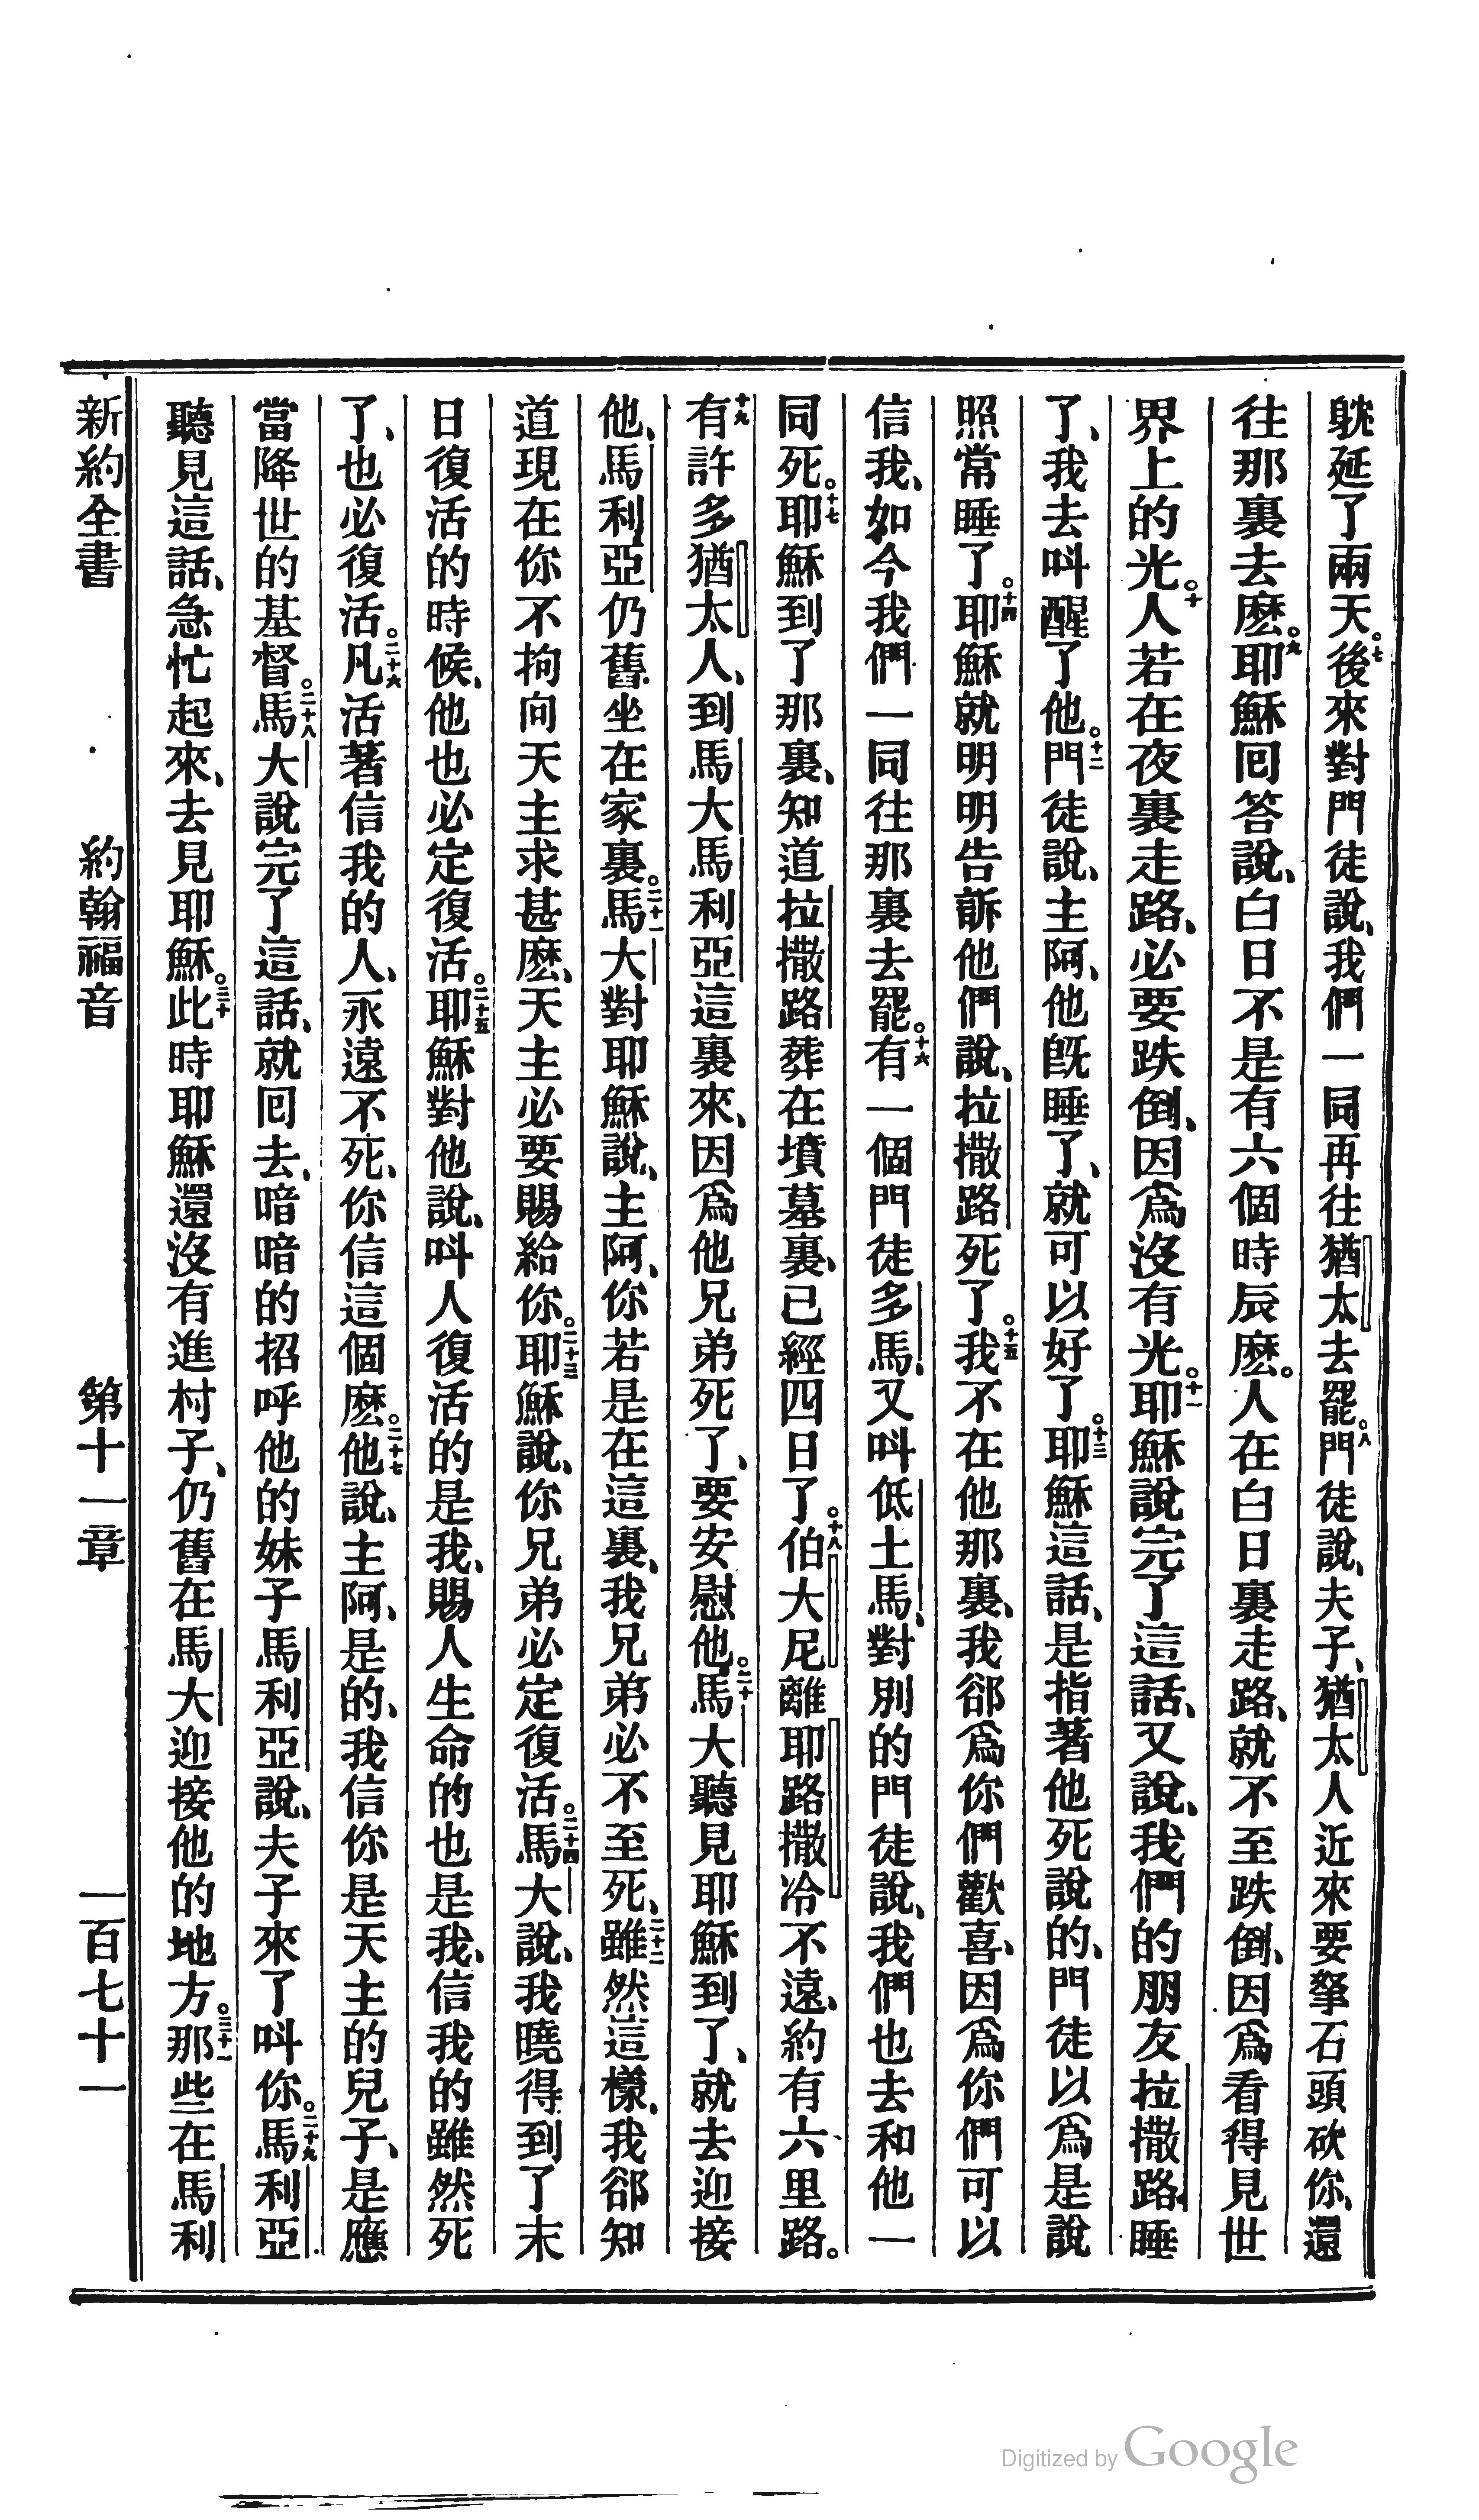 躭延了兩天。七後來對門徒說、我們一同再往猶太去罷。八門徒說、夫子、猶太人近來要拏石頭砍你、還
往那裏去麽。九耶穌囘答說、白日不是有六個時辰麽。人在白日裏走路、就不至跌倒、因爲看得見世
界上的光。十人若在夜裏走路、必要跌倒、因爲沒有光。十一耶穌說完了這話、又說、我們的朋友拉撒路、睡
了、我去呌醒了他。十二門徒說、主阿、他旣睡了、就可以好了。十三耶穌這話、是指著他死說的、門徒以爲是說
照常睡了。十四耶穌就明明告訴他們說、拉撒路死了。十五我不在他那裏、我郤爲你們歡喜、因爲你們可以
信我、如今我們一同往那裏去罷。十六有一個門徒多馬、又呌低土馬、對別的門徒說、我們也去和他一
同死。十七耶穌到了那裏、知道拉撒路葬在墳墓裏、已經四日了。十八伯大尼離耶路撒冷不遠、約有六里路。
十九有許多猶太人、到馬大馬利亞這裏來、因爲他兄弟死了、要安慰他。二十馬大聽見耶穌到了、就去迎接
他、馬利亞仍舊坐在家裏。二十一馬大對耶穌說、主阿、你若是在這裏、我兄弟必不至死、二十二雖然這樣、我郤知
道現在你不拘向天主求甚麽、天主必要賜給你。二十三耶穌說、你兄弟必定復活。二十四馬大說、我曉得到了末
日復活的時候、他也必定復活。二十五耶穌對他說、呌人復活的是我、賜人生命的也是我、信我的雖然死
了、也必復活。二十六凡活著信我的人、永遠不死、你信這個麽。二十七他說、主阿、是的、我信你是天主的兒子、是應
當降世的基督。二十八馬大說完了這話、就囘去、暗暗的招呼他的妹子馬利亞說、夫子來了呌你。二十九馬利亞
聽見這話、急忙起來、去見耶穌。三十此時耶穌還沒有進村子、仍舊在馬大迎接他的地方。三十一那些在馬利
新約全書 約翰福音 第十一章 一百七十一
Digitized by Google